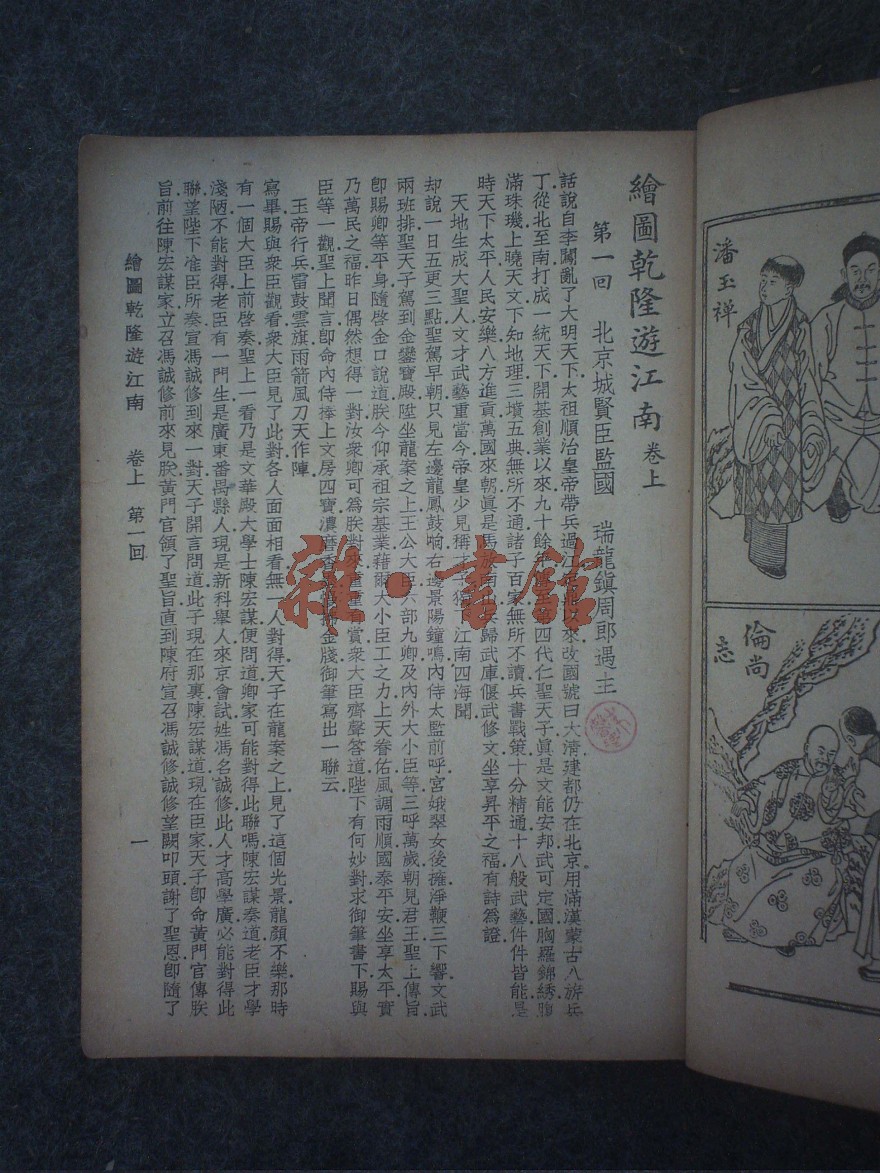 潘玉禅
倫尚志
繪圖乾隆遊江南 卷上
第一回 北京城賢臣監國 瑞龍鎮周郎遇主
話說自李闖亂了大明天下太祖順治皇帝帶兵過江以來改國號曰大清建都仍在北京用滿漢蒙古八旂兵
丁從北至南打成一統天下開基創業以來九十餘年第四代仁聖天子眞是文能安邦武可定國胸羅錦綉腹
滿珠璣上曉天文下知地理三墳五典無所不通諸子百家無所不讀兵書戰策十分精通十八般武藝件件皆能是
時天下太平人民安樂八方進貢萬國來朝眞是馬放南山兵歸武庫偃武修文坐享昇平之福有詩爲證
天地生成大聖人文才武藝重當今帝皇少見稱才子獨下江南四海聞
却說一日五更三點聖駕早朝只見左邊龍鳳鼓响右邊景陽鐘鳴內侍太監前呼宮娥翠女後擁淨鞭三下響文武
兩班排聖天子駕到金鑾寶殿陞坐龍案之上王公大臣六部九卿及內外大小臣等三呼萬歲朝見君王聖上傳旨
卽賜卿等平身隨啓金口說道朕今仰承祖宗基業藉爾大小臣工之力上天眷佑風調雨順國泰平安坐享太平實
乃萬民之福昨日偶然想得一對汝衆卿可爲朕對來重重有賞衆大臣齊聲答道陛下有何妙對求御筆書下賜與
臣等一觀聖上聞言卽命內侍捧上文房四寶濃磨香金牋御筆寫出一聯云
玉帝行兵雷鼓雲旗雨箭風刀天作陣
寫畢賜與衆臣觀看衆大臣見了此對各人面面相看無一人對得天子在龍案之上見了這個光景龍顏不樂那時
有一個大臣上前啓奏聖上一看乃是文華殿大學士陳宏謀便問道卿家可能對得此聯嗎陳宏謀奏道老臣才學
淺陋不能對得老臣有一門生是廣東番禺縣人現是新科舉人來京會試姓馮名誠修此人才高學廣必能對得此
聯望陛下准臣所奏宣馮誠修到來一對天子開言問道此子現在那裏陳宏謀道現在臣家天子卽命黃門官傳朕
旨前往陳宏謀家立召馮誠修前來見朕黃門官領了聖旨直到陳府宣召馮誠修誠修望闕叩頭謝了聖恩卽隨了
繪圖乾隆遊江南 卷上 第一回 一
雜·書館